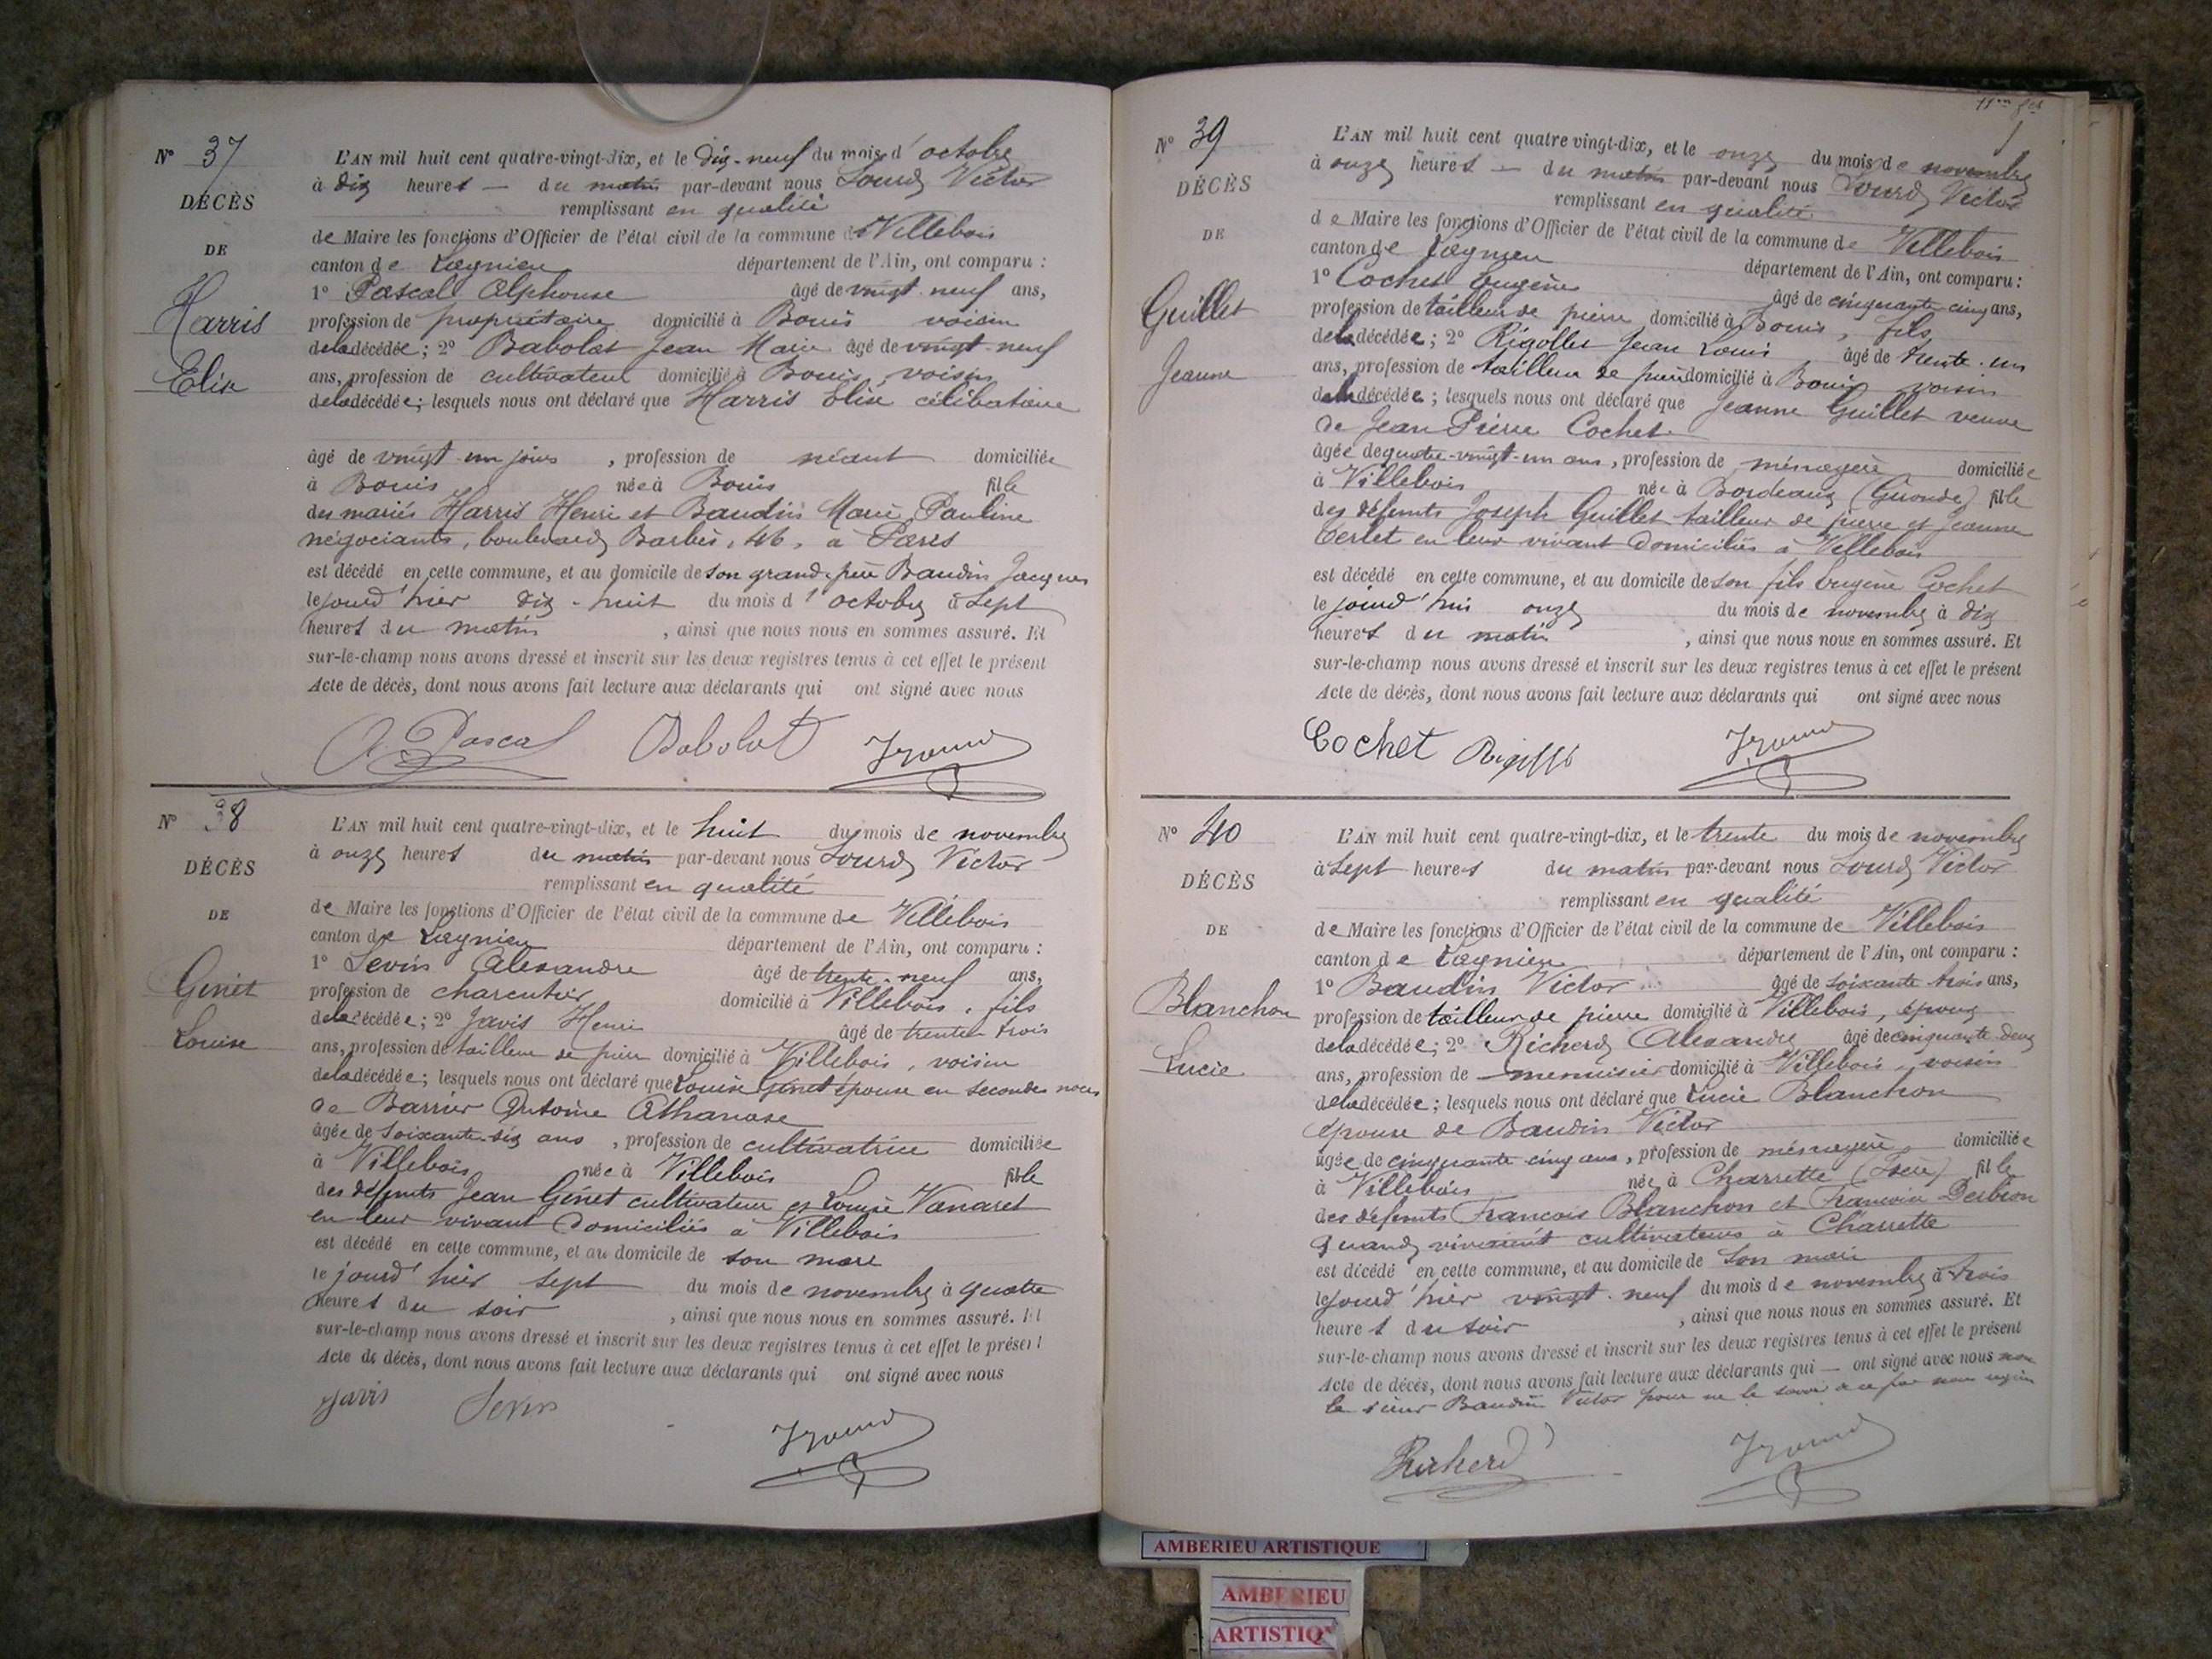 N° 37
DÉCÈS
DE
Harris
Elise
L'AN mil huit cent quatre-vingt-dix, et le dix-neuf du mois d'octobre
à dix heures — du matin par-devant nous Lourd Victor
remplissant en qualité
de Maire les fonctions d'Officier de l'état civil de la commune de Villebois
canton de Lagnieu département de l'Ain, ont comparu :
1° Pascal Alphonse âgé de vingt-neuf ans,
profession de propriétaire domicilié à Bouis voisin
de la décédée ; 2° Babolat Jean Marie âgé de vingt-neuf
ans, profession de cultivateur domicilié à Bouis, voisin
de la décédée ; lesquels nous ont déclaré que Harris Elise célibataire
âgé de vingt-un jours , profession de néant domiciliée
à Bouis née à Bouis fille
des mariés Harris Henri et Baudin Marie Pauline
négociants, boulevard Barbès, 46, à Paris
est décédé en cette commune, et au domicile de son grand-père Baudin Jacques
le jourd'hier dix-huit du mois d'octobre à sept
heures du matin , ainsi que nous nous en sommes assuré. Et
sur-le-champ nous avons dressé et inscrit sur les deux registres tenus à cet effet le présent
Acte de décès, dont nous avons fait lecture aux déclarants qui ont signé avec nous
A Pascal Babolat
N° 38
DÉCÈS
DE
Genet
Louise
L'AN mil huit cent quatre-vingt-dix, et le huit du mois de novembre
à onze heures du matin par-devant nous Lourd Victor
remplissant en qualité
de Maire les fonctions d'Officier de l'état civil de la commune de Villebois
canton de Lagnieu département de l'Ain, ont comparu :
1° Sevin Alexandre âgé de trente-neuf ans,
profession de charcutier domicilié à Villebois, fils
de la décédée ; 2° Javis Henri âgé de trente trois
ans, profession de tailleur de pierre domicilié à Villebois, voisin
de la décédée ; lesquels nous ont déclaré que Louise Genet épouse en secondes noces
de Barrier Antoine Athanase
âgée de soixante-six ans , profession de cultivatrice domiciliée
à Villebois née à Villebois fille
des défunts Jean Genet cultivateur et Louise Vanaret
en leur vivant domiciliés à Villebois
est décédé en cette commune, et au domicile de son mari
le jourd'hier sept du mois de novembre à quatre
heures du soir , ainsi que nous nous en sommes assuré. Et
sur-le-champ nous avons dressé et inscrit sur les deux registres tenus à cet effet le présent
Acte de décès, dont nous avons fait lecture aux déclarants qui ont signé avec nous
Javis Sevin
N° 39
DÉCÈS
DE
Guillet
Jeanne
L'AN mil huit cent quatre vingt-dix, et le onze du mois de novembre
à onze heures — du matin par-devant nous Lourd Victor
remplissant en qualité
de Maire les fonctions d'Officier de l'état civil de la commune de Villebois
canton de Lagnieu département de l'Ain, ont comparu :
1° Cochet Eugène âgé de cinquante-cinq ans,
profession de tailleur de pierre domicilié à Bouis, fils
de la décédée ; 2° Rigollet Jean Louis âgé de trente-un
ans, profession de tailleur de pierre domicilié à Bouis voisin
de la décédée ; lesquels nous ont déclaré que Jeanne Guillet veuve
de Jean Pierre Cochet
âgée de quatre-vingt-un ans , profession de ménagère domiciliée
à Villebois née à Bordeaux (Gironde) fille
des défunts Joseph Guillet tailleur de pierre et Jeanne
Terlet en leur vivant domiciliés à Villebois
est décédé en cette commune, et au domicile de son fils Eugène Cochet
le jourd'hui onze du mois de novembre à dix
heures du matin , ainsi que nous nous en sommes assuré. Et
sur-le-champ nous avons dressé et inscrit sur les deux registres tenus à cet effet le présent
Acte de décès, dont nous avons fait lecture aux déclarants qui ont signé avec nous
Cochet
N° 40
DÉCÈS
DE
Blanchon
Lucie
L'AN mil huit cent quatre-vingt-dix, et le trente du mois de novembre
à sept heures du matin par-devant nous Lourd Victor
remplissant en qualité
de Maire les fonctions d'Officier de l'état civil de la commune de Villebois
canton de Lagnieu département de l'Ain, ont comparu :
1° Baudin Victor âgé de soixante trois ans,
profession de tailleur de pierre domicilié à Villebois, époux
de la décédée ; 2° Richerd Alexandre âgé de cinquante-deux
ans, profession de menuisier domicilié à Villebois, voisin
de la décédée ; lesquels nous ont déclaré que Lucie Blanchon
épouse de Baudin Victor
âgée de cinquante-cinq ans , profession de ménagère domiciliée
à Villebois née à Charrette (Isère) fille
des défunts François Blanchon et Françoise Derbron
quand vivaient cultivateurs à Charrette
est décédé en cette commune, et au domicile de son mari
le jourd'hier vingt-neuf du mois de novembre à trois
heures du soir , ainsi que nous nous en sommes assuré. Et
sur-le-champ nous avons dressé et inscrit sur les deux registres tenus à cet effet le présent
Acte de décès, dont nous avons fait lecture aux déclarants qui — ont signé avec nous non
le sieur Baudin Victor pour ne le savoir à ce par nous requis
Richerd
AMBERIEU ARTISTIQUE
AMBERIEU
ARTISTIQ